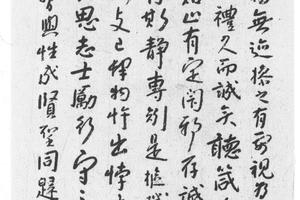 物無迹操之有要視為
禮久而誠矣聽箴
知止有定閑邪存誠
斯靜專矧是樞
支己肆物忤出悖
思志士勵行守之
習與性成賢聖同歸